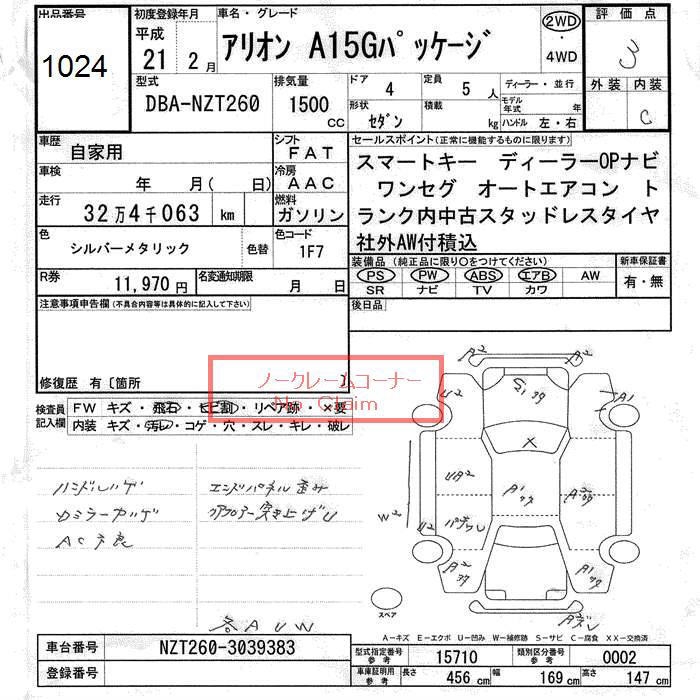 出品番号
1024
初度登録年月
平成
21 2月
車名・グレード
アリオン A15Gパッケージ
2WD
・
4WD
評価点
3
外装 内装
C
型式
DBA-NZT260
排気量
1500 CC
ドア
4
定員
5 人
形状
セダン
積載
kg
ディーラー・並行
モデル年式 年
ハンドル 左・右
車歴
自家用
シフト
FAT
車検
年 月( 日)
冷房
AAC
走行
32万4千063 km
燃料
ガソリン
色
シルバーメタリック
色替
色コード
1F7
R券
11,970円
名変通知期限
月 日
セールスポイント(正常に機能するものに限ります)
スマートキー ディーラーOPナビ
ワンセグ オートエアコン ト
ランク内中古スタッドレスタイヤ
社外AW付積込
装備品 (純正品に限り○をつけてください)
PS PW ABS エアB AW
SR ナビ TV カワ
新車保証書
有・無
後日品
注意事項申告欄(不具合内容等は具体的に記入して下さい)
修復歴 有〔箇所 〕
ノークレームコーナー
No Claim
検査員
記入欄
FW キズ・飛石・ヒビ割・リペア跡・×要
内装 キズ・汚レ・コゲ・穴・スレ・キレ・破レ
ハンドルハゲ
エンドパネル歪み
AC不良
各AUW
A2
A2
U2
S1
A1
X
UA2
A1
W2
U2
A2
A1
スペア
A-キズ E-エクボ U-凹み W-補修跡 S-サビ C-腐食 XX-交換済
車台番号
NZT260-3039383
登録番号
型式指定番号
参考
15710
類別区分番号
参考
0002
車庫証明用
参考
長さ
456 cm
幅
169 cm
高さ
147 cm